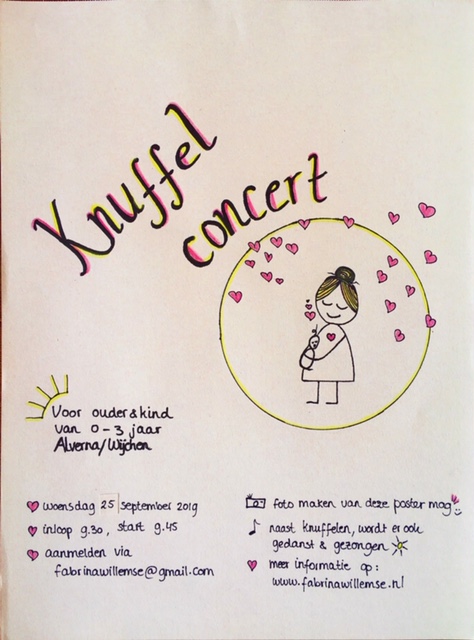 Knuffel
concert
Voor ouder & kind
van 0-3 jaar
Alverna/Wijchen
woensdag 25 september 2019
inloop 9.30, start 9.45
aanmelden via
fabrinawillemse@gmail.com
foto maken van deze poster mag
naast knuffelen, wordt er ook
gedanst & gezongen
meer informatie op:
www.fabrinawillemse.nl